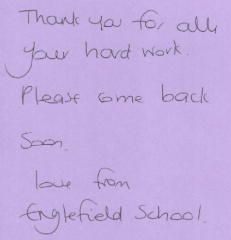 Thank you for all
your hard work.
Please come back
Soon.
love from
Englefield School.